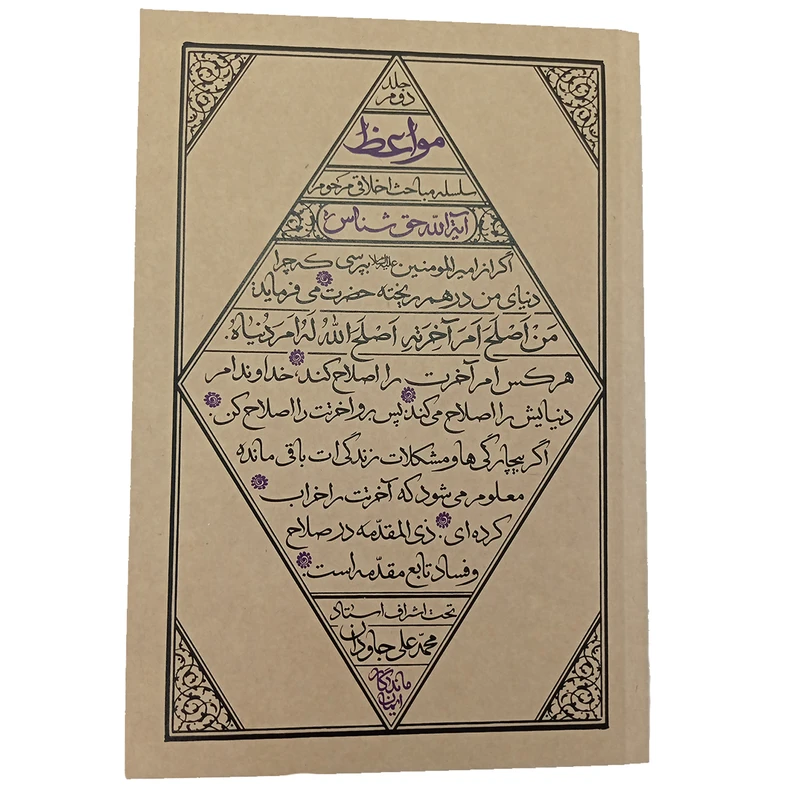 جلد
دوم
مواعظ
سلسله مباحث اخلاقی مرحوم
آیة الله حق شناس ره
اگر از امیرالمومنین علیه‌السلام بپرسی که چرا
دنیای من در هم ریخته حضرت می فرماید:
مَن اَصلَحَ اَمرَ آخِرَتِهِ اَصلَحَ اللهُ لَهُ اَمرَ دُنیاهُ.
هر کس امر آخرت را اصلاح کند، خداوند امر
دنیایش را اصلاح می کند. پس برو آخرتت را اصلاح کن.
اگر بیچارگی ها و مشکلات زندگی ات باقی مانده
معلوم می شود که آخرتت را خراب
کرده ای. ذی المقدّمه در صلاح
و فساد تابع مقدّمه است.
تحت اشراف استاد
محمد علی جاودان
ماندگار
ایمان